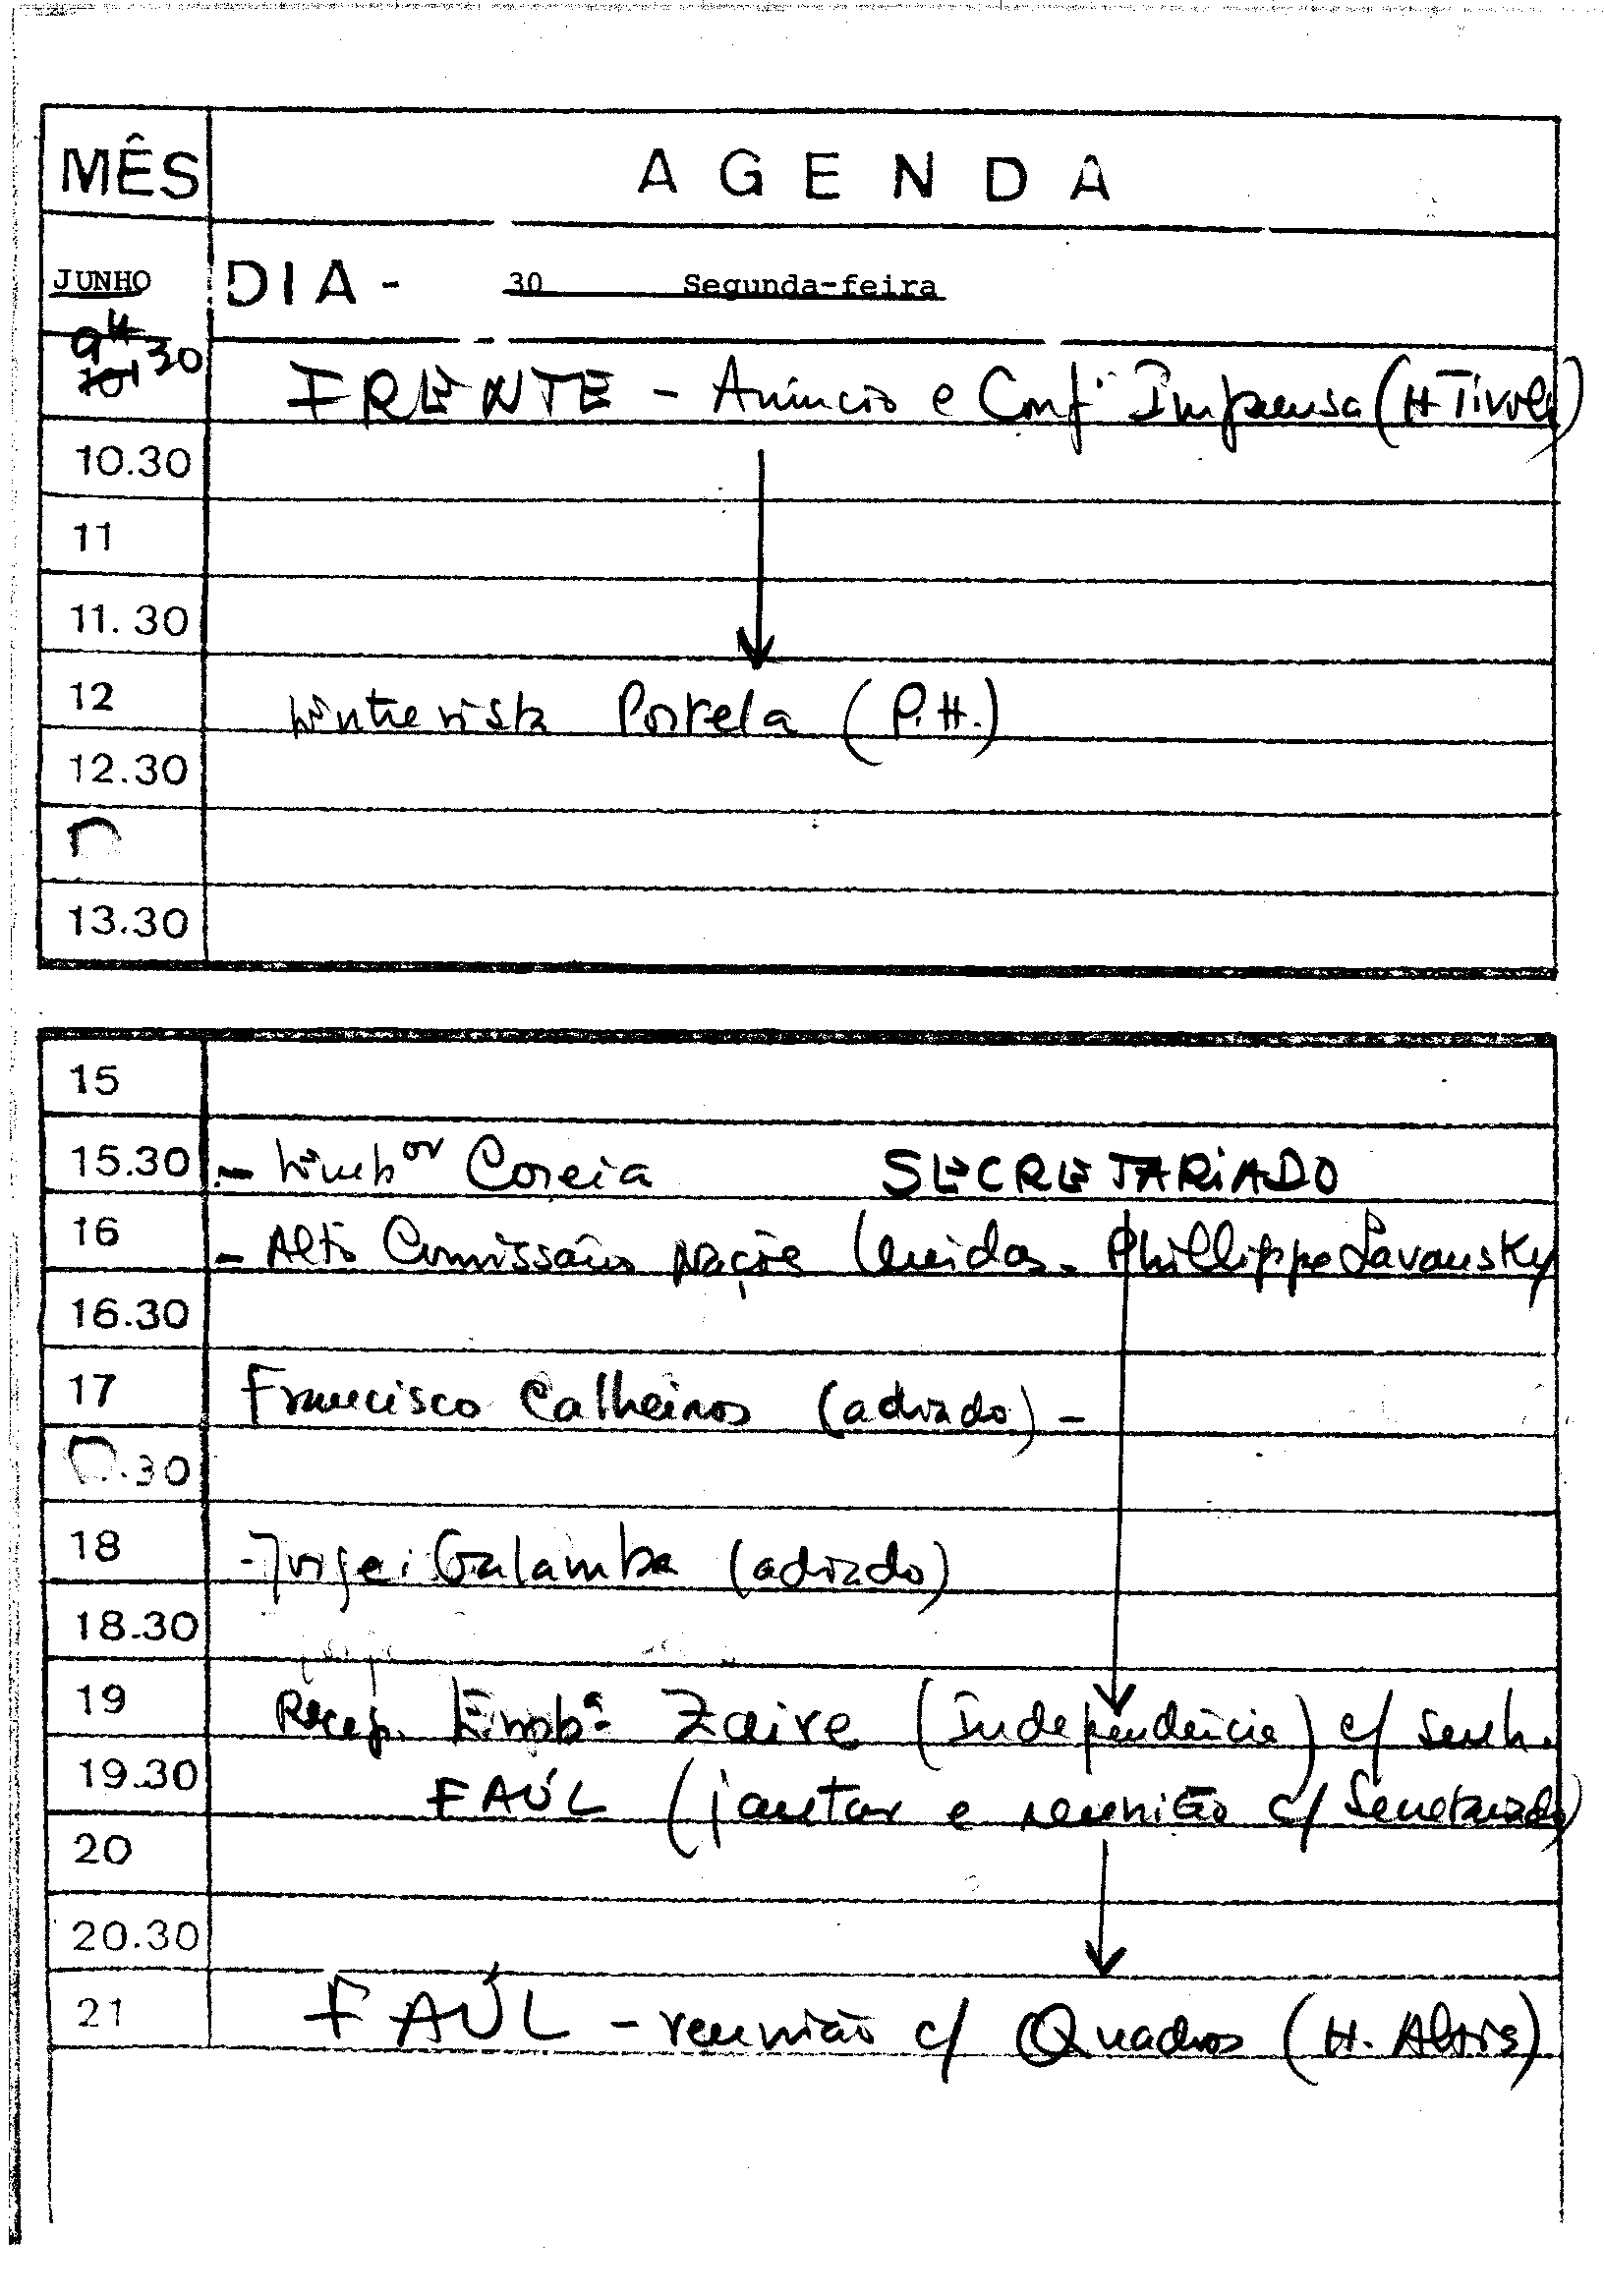 MÊS A G E N D A
JUNHO DIA - 30 Segunda-feira
9H30 FRENTE - Anúncio e Conf. Imprensa (H Tivoli)
10.30
11
11.30
12 Entrevista Portela (P.H.)
12.30
13.30
15
15.30 - Embor Coreia SECRETARIADO
16 - Alto Comissário Nações Unidas - Phillippe Lavansky
16.30
17 Francisco Calheiros (adiado) -
.30
18 - Jorge Galamba (adiado)
18.30
19 Recep. Embª Zaire (Independência) c/ senh.
19.30 FAÚL (jantar e reunião c/ Secretariado)
20
20.30
21 FAÚL - reunião c/ Quadros (H. Altis)